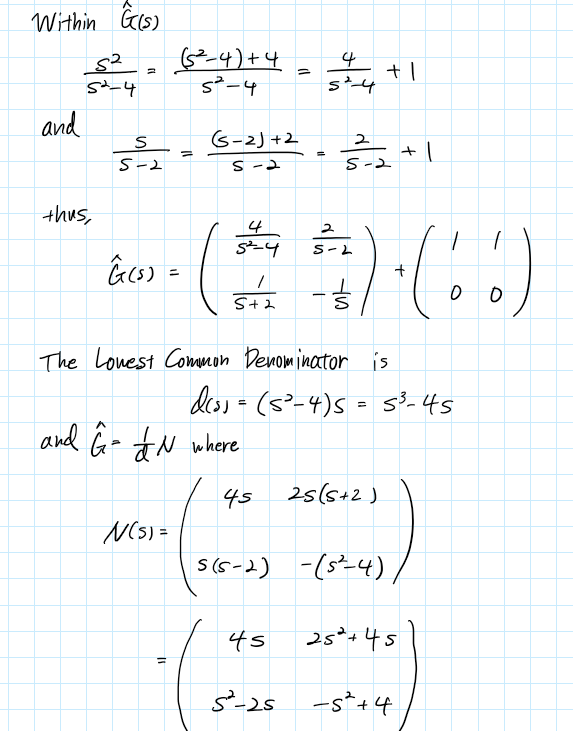 Within Ĝ(s)
s²/(s²-4) = ((s²-4)+4)/(s²-4) = 4/(s²-4) + 1
and
s/(s-2) = ((s-2)+2)/(s-2) = 2/(s-2) + 1
thus,
Ĝ(s) = ( 4/(s²-4) 2/(s-2) ; 1/(s+2) -1/s ) + ( 1 1 ; 0 0 )
The Lowest Common Denominator is
d(s) = (s²-4)s = s³-4s
and Ĝ = 1/d N where
N(s) = ( 4s 2s(s+2) ; s(s-2) -(s²-4) )
= ( 4s 2s²+4s ; s²-2s -s²+4 )